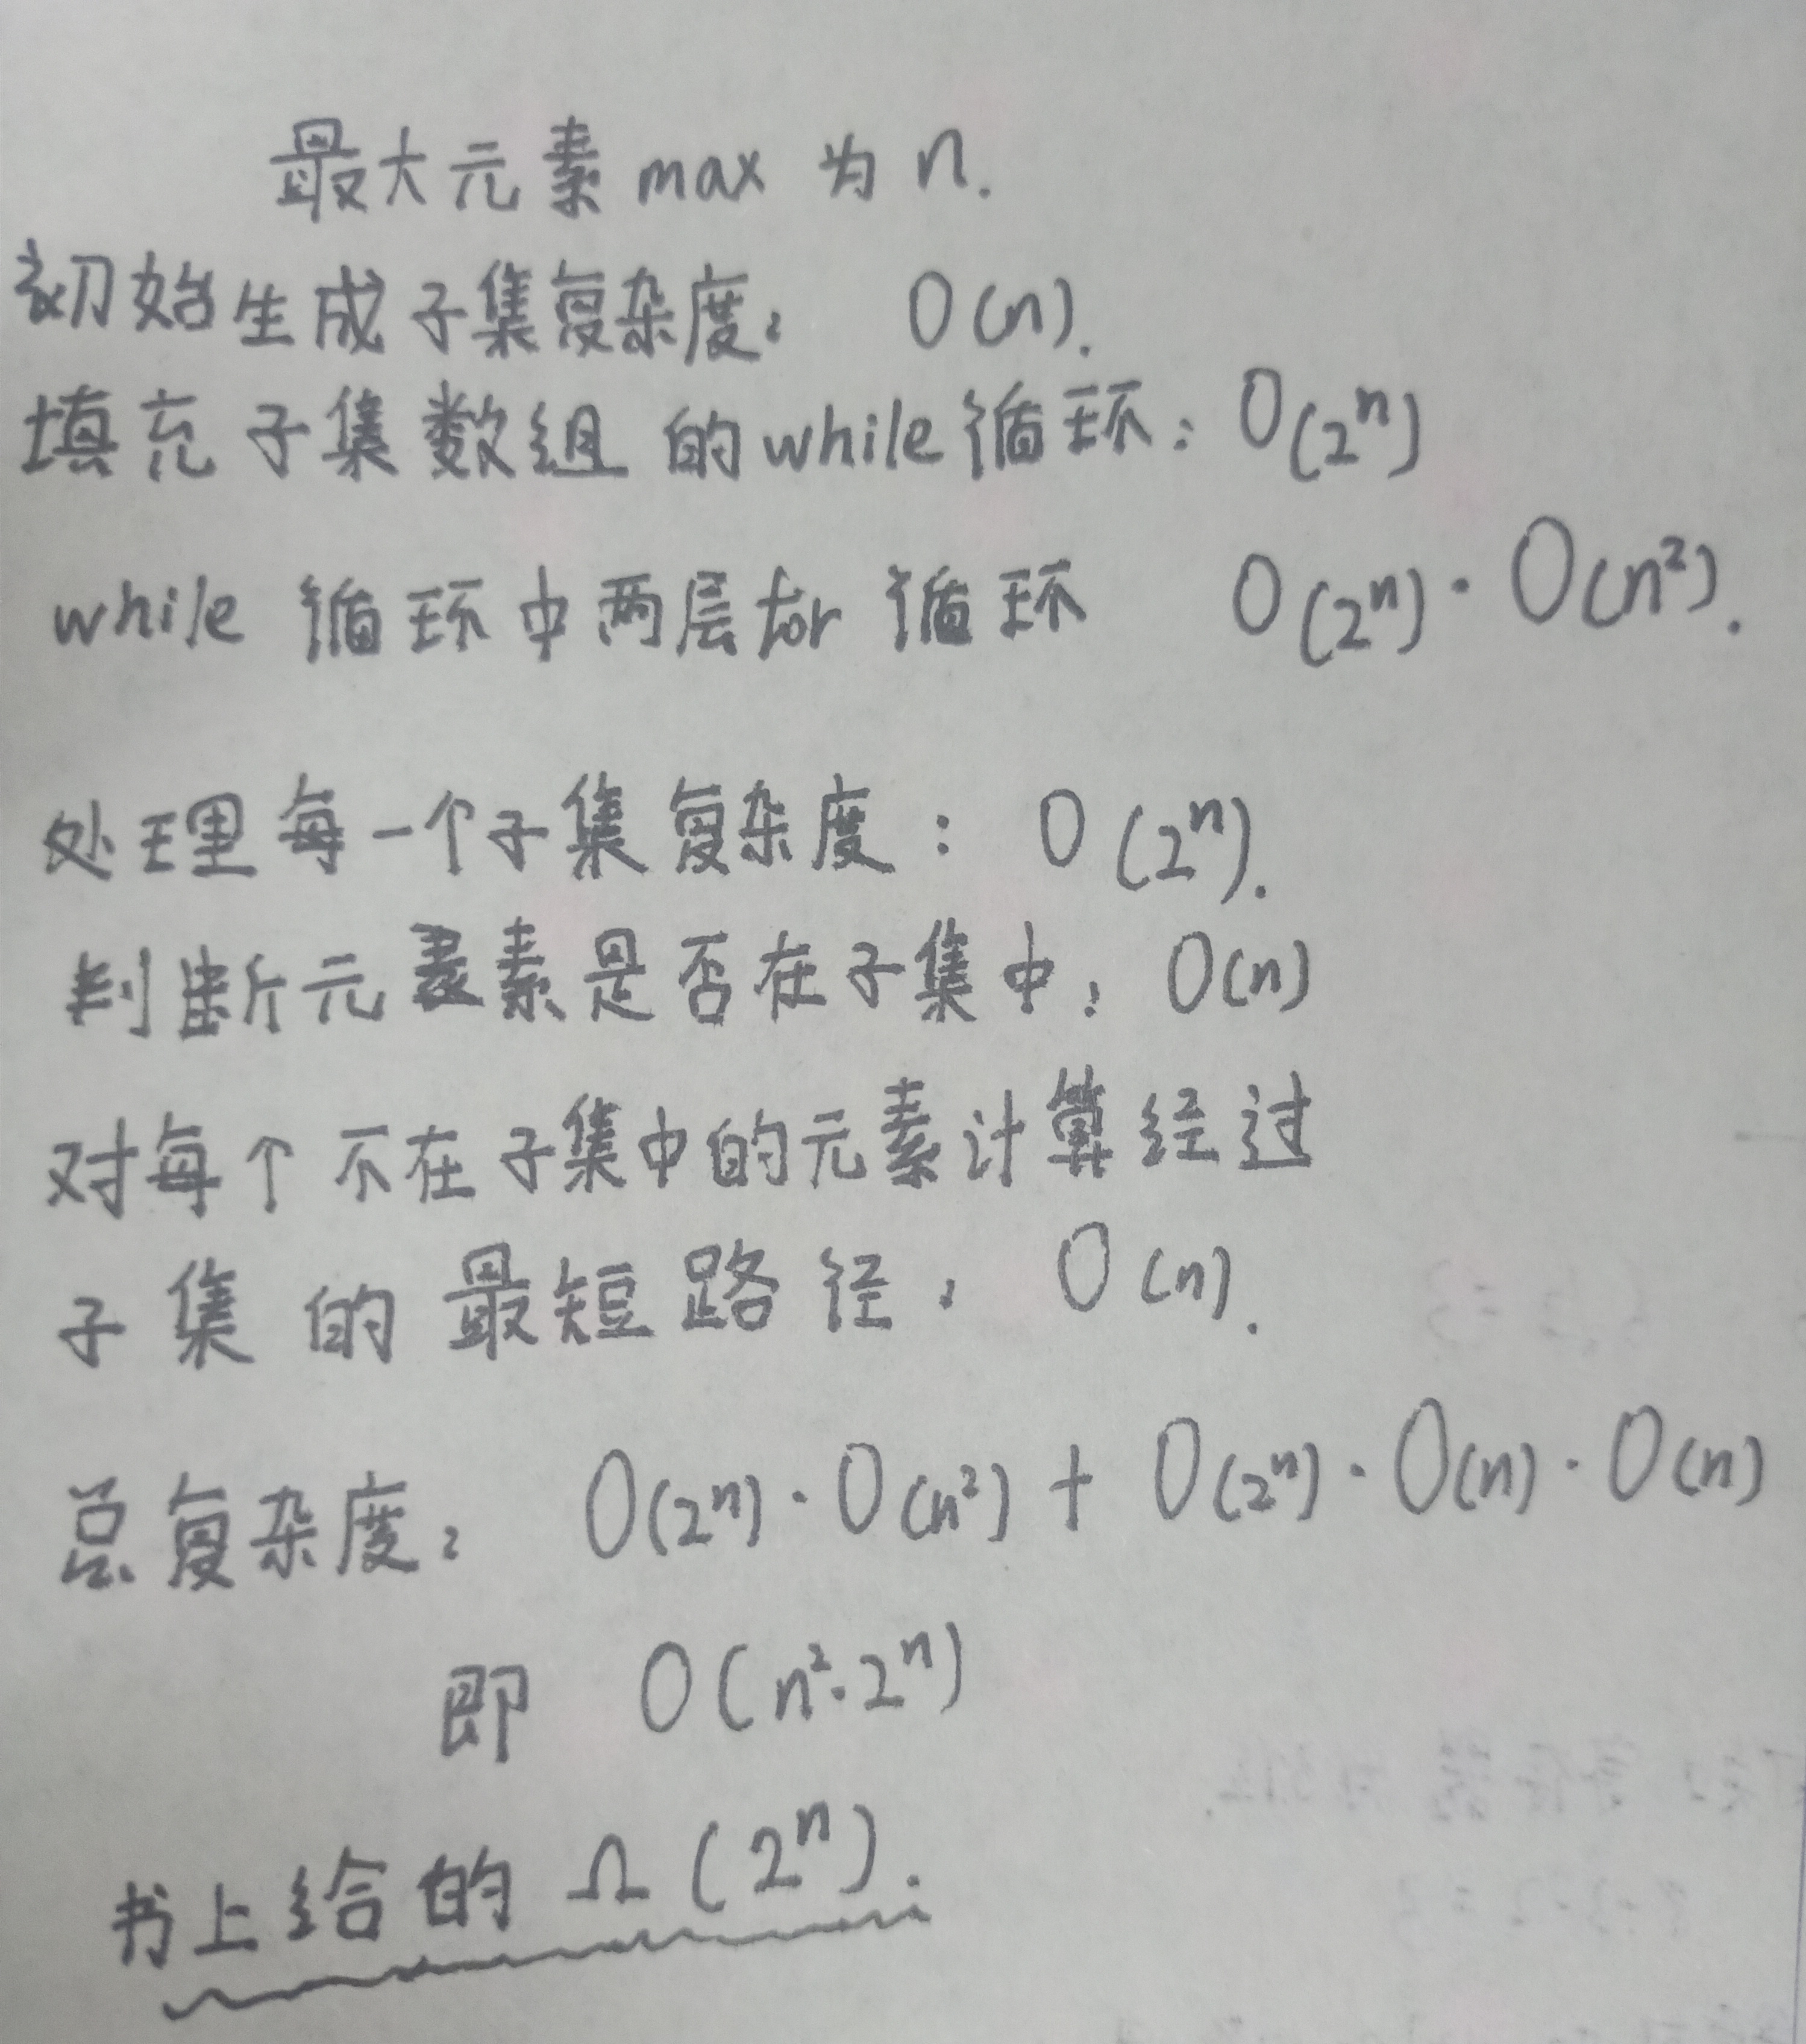 最大元素 max 为 n.
初始生成子集复杂度: O(n).
填充子集数组的while循环: O(2ⁿ)
while 循环中两层for 循环 O(2ⁿ)·O(n²).
处理每一个子集复杂度: O(2ⁿ).
判断元素是否在子集中: O(n)
对每个不在子集中的元素计算经过
子集的最短路径: O(n).
总复杂度: O(2ⁿ)·O(n²) + O(2ⁿ)·O(n)·O(n)
即 O(n²·2ⁿ)
书上给的 Ω(2ⁿ).